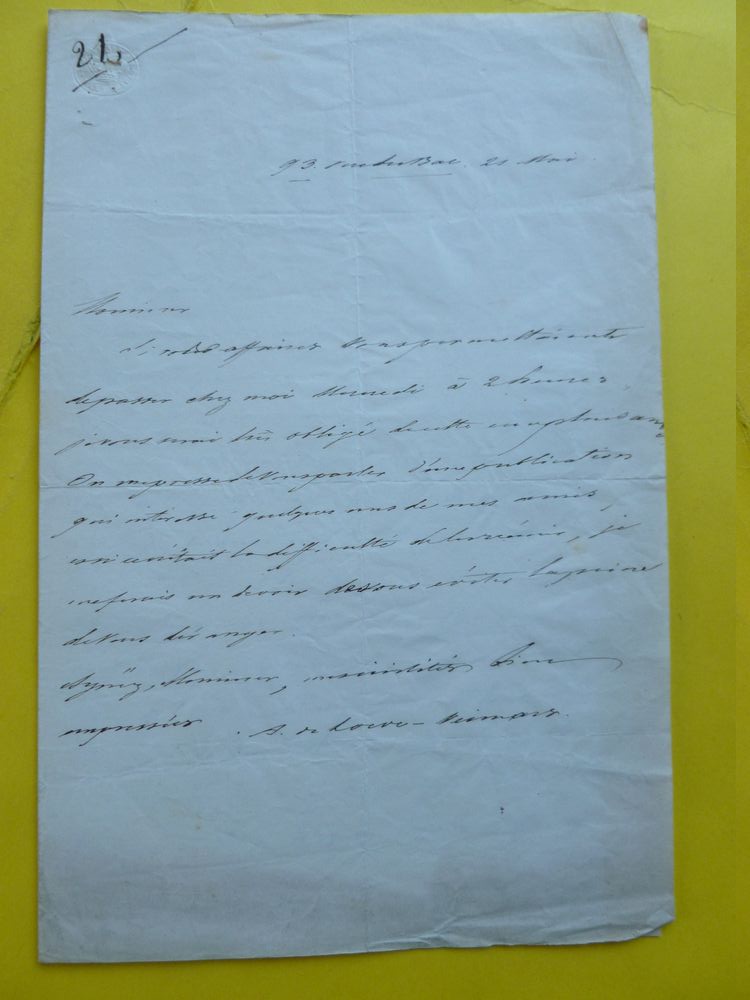 21
93. rue du Bac. 21 Mai
Monsieur
Si vos affaires vous permettaient
de passer chez moi Mercredi à 2 heures
je vous serai très obligé de cette complaisance
On me presse de vous parler d'une publication
qui intéresse quelques uns de mes amis,
la difficulté de les réunir, je
me ferais un devoir de vous éviter la peine
de vous déranger.
Agréez, Monsieur, mes civilités bien
empressées. A. de Loeve-Veimars.